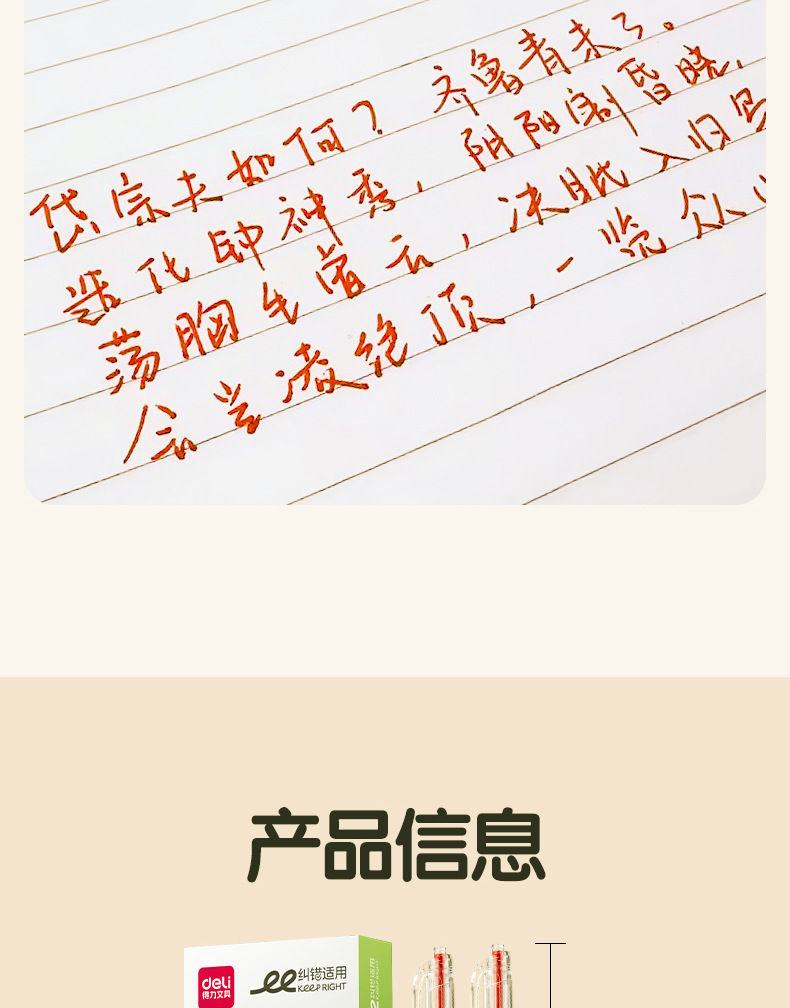 岱宗夫如何？齐鲁青未了。
造化钟神秀，阴阳割昏晓，
荡胸生曾云，决眦入归鸟
会当凌绝顶，一览众
产品信息
deli
得力文具
纠错适用
KEEP RIGHT
纠错适用